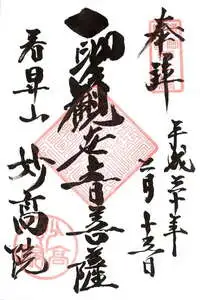 奉拝
平成三十年
二月十五日
聖観世音菩薩
山
妙高院